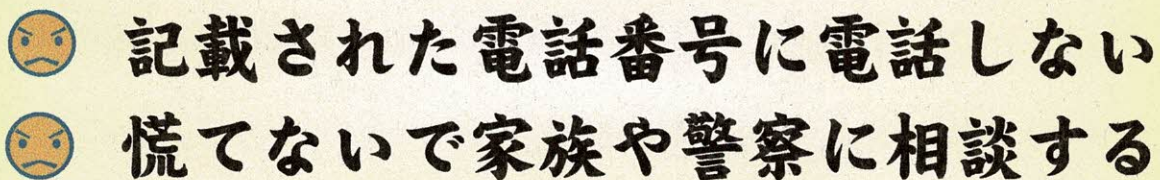 記載された電話番号に電話しない
慌てないで家族や警察に相談する